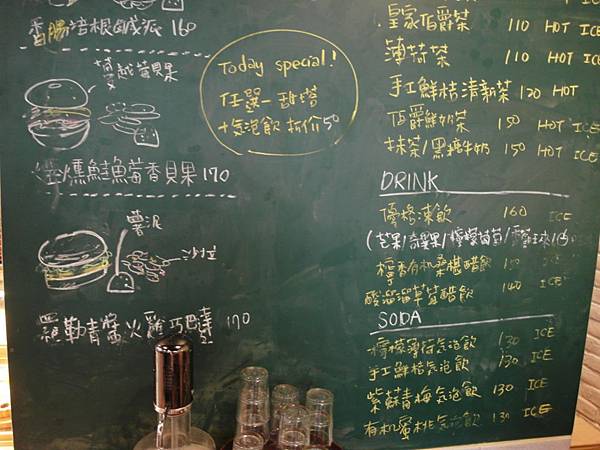 香腸培根鹹派 160
蔓越莓貝果
煙燻鮭魚茴香貝果 170
薯泥
沙拉
羅勒青醬火雞巧巴達 170
Today special!
任選一甜塔
+氣泡飲 折价50
皇家伯爵茶 110 HOT ICE
薄荷茶 110 HOT ICE
手工鮮桔清新茶 120 HOT
伯爵鮮奶茶 150 HOT ICE
抹茶/黑糖牛奶 150 HOT ICE
DRINK
優格凍飲 160 ICE
(芒果/奇異果/檸檬
檸香有机桑椹醋飲 ICE
酸溜溜草莓醋飲 140 ICE
SODA
檸檬薄荷氣泡飲 130 ICE
手工鮮桔氣泡飲 130 ICE
紫蘇青梅氣泡飲 130 ICE
有机蜜桃氣泡飲 130 ICE